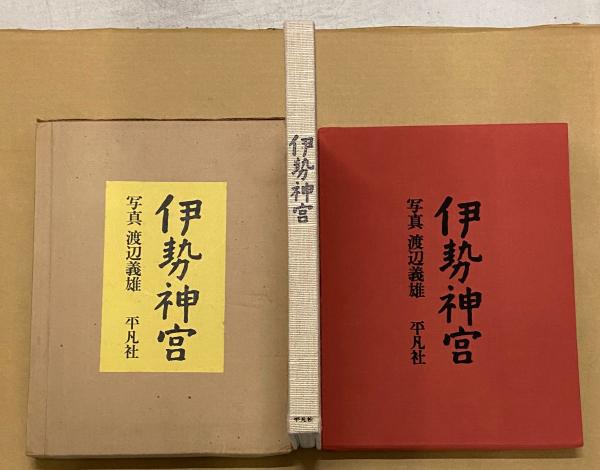 伊勢神宮
写真 渡辺義雄 平凡社
伊勢神宮
平凡社
伊勢神宮
写真 渡辺義雄 平凡社